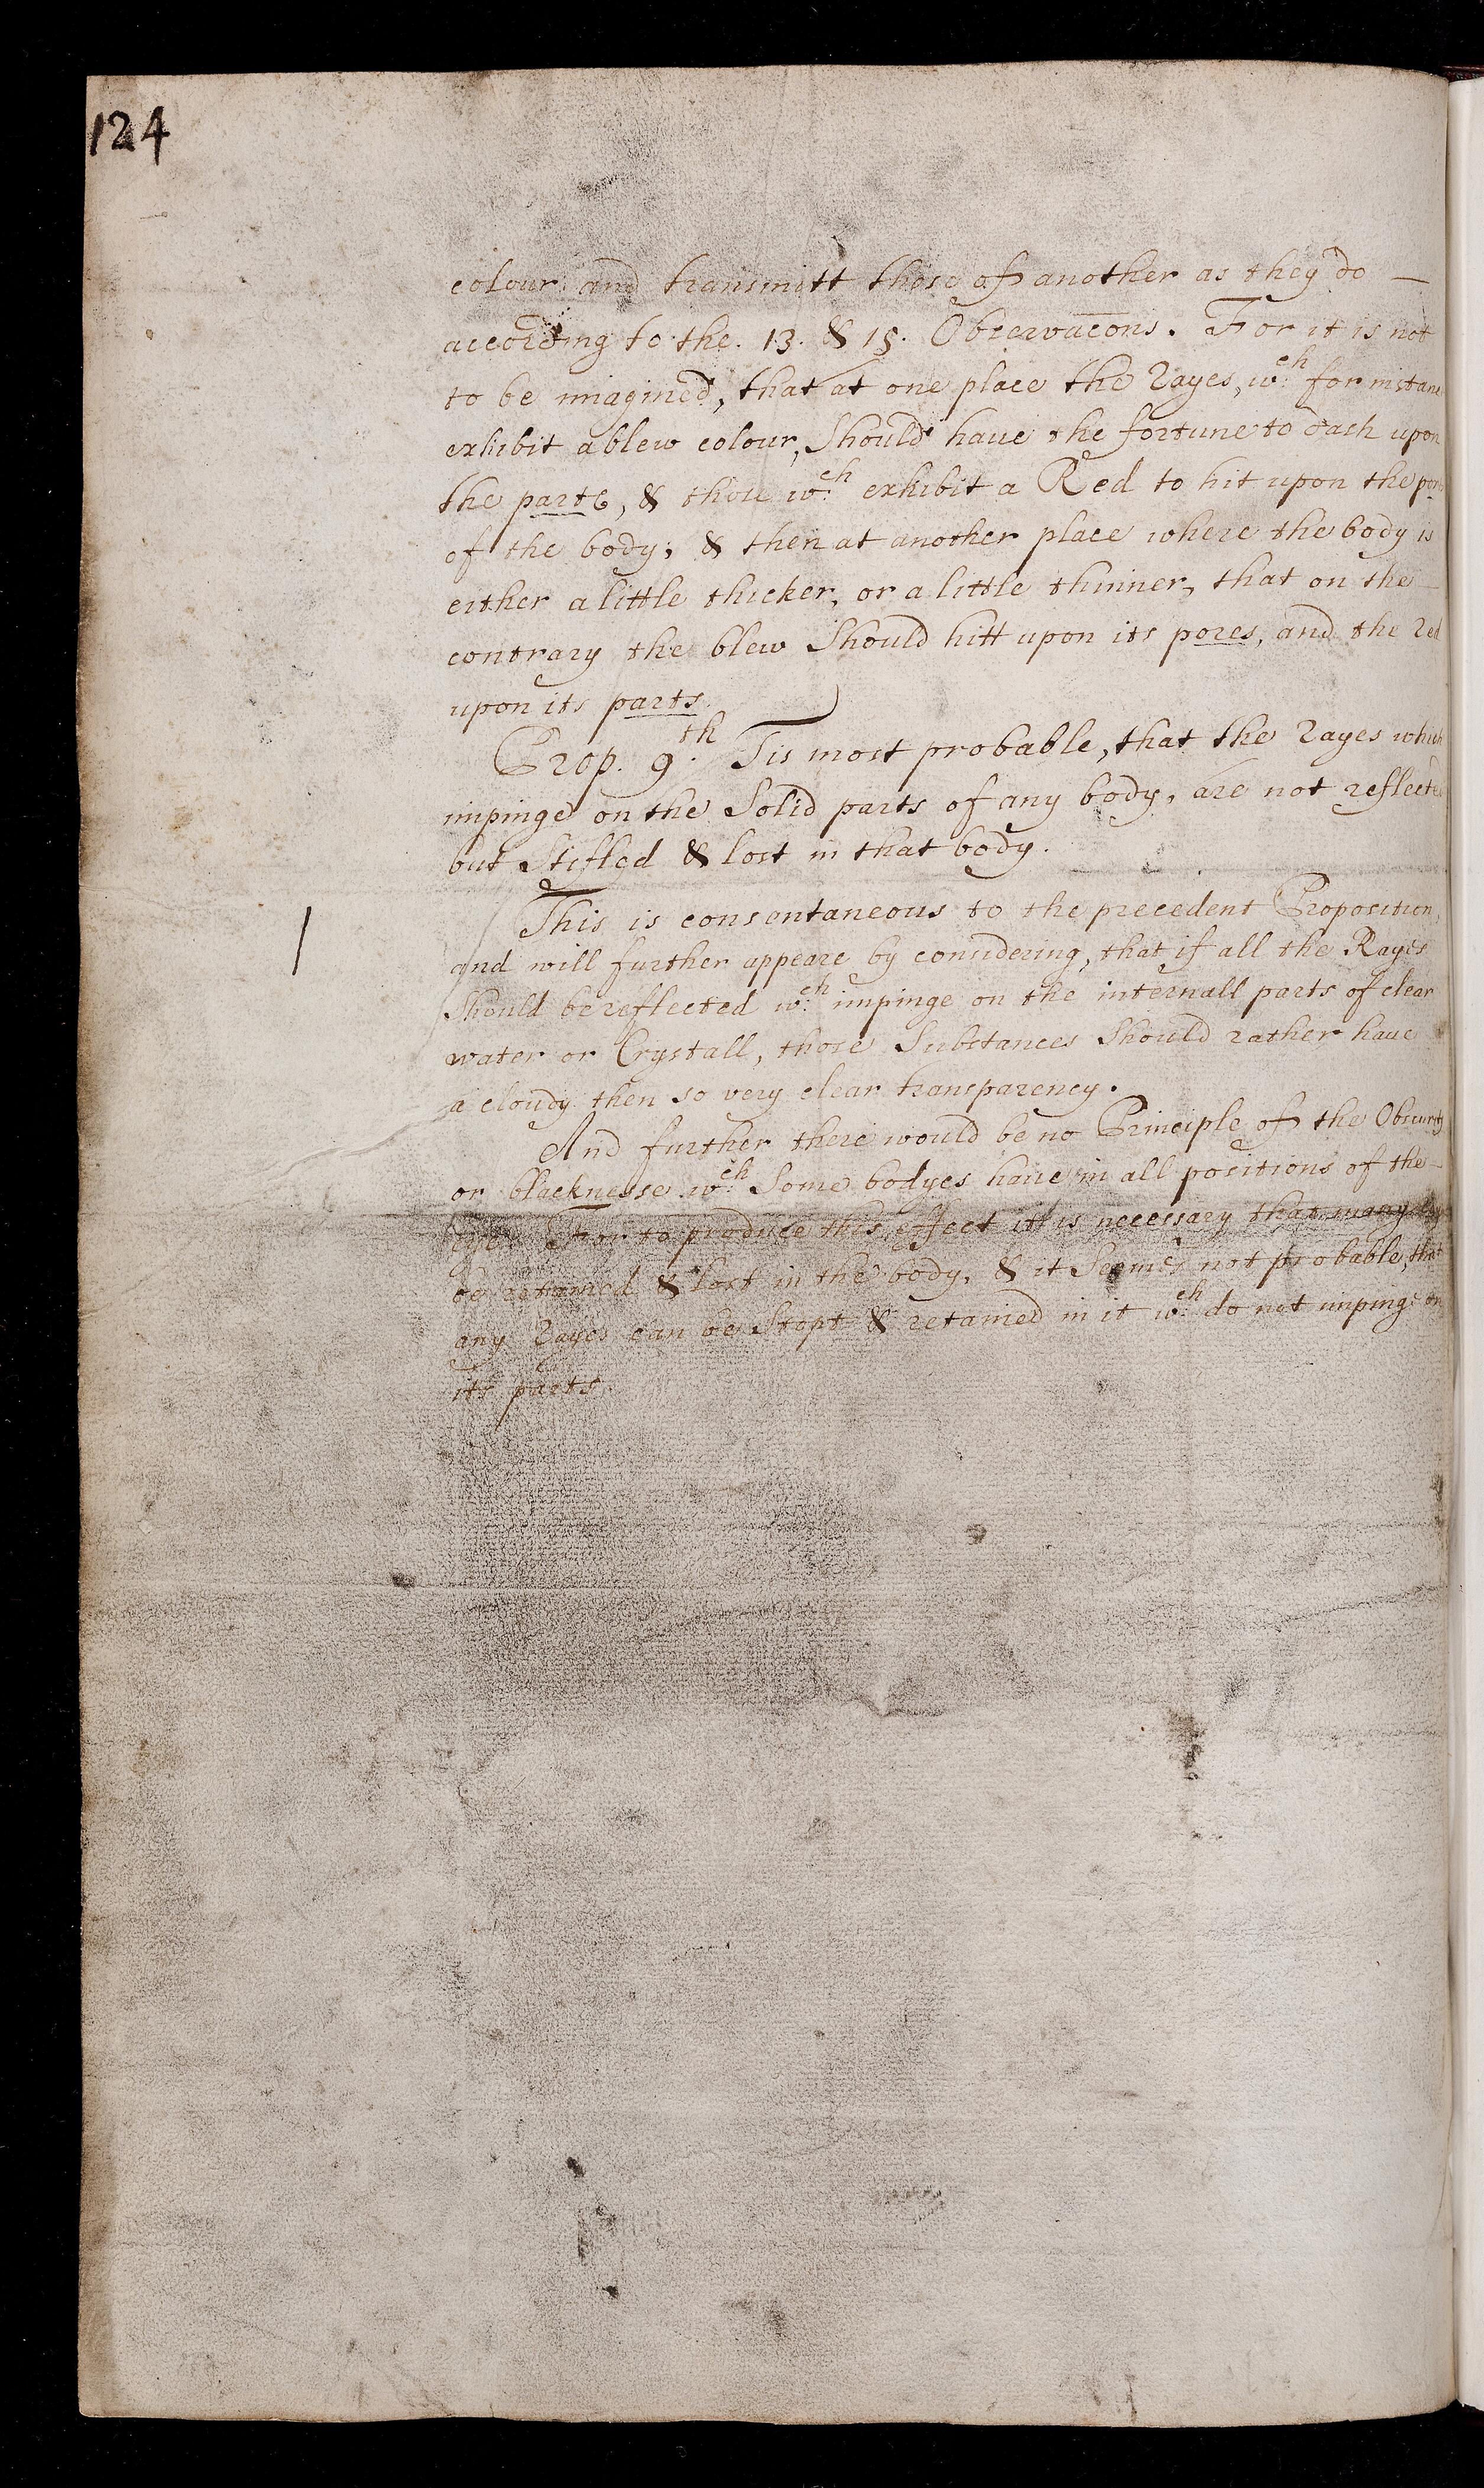 124
colour and transmitt those of another as they do —
according to the. 13. & 15. Observac̄ons. For it is not
to be imagined, that at one place the Rayes, wch for instan
exhibit a blew colour, Should have the fortune to dash upon
the parts, & those wch exhibit a Red to hit upon the pores
of the body; & then at another place where the body is
either a little thicker, or a little thinner, that on the
contrary the blew Should hitt upon its pores, and the red
upon its parts.
Prop. 9.th Tis most probable, that the rayes which
impinge on the Solid parts of any body, are not reflected
but Stifled & lost in that body.
This is consentaneous to the precedent Proposition,
and will further appeare by considering, that if all the Rayes
Should be reflected wch impinge on the internall parts of clear
water or Crystall, those Substances Should rather have
a cloudy then so very clear transparency.
And further there would be no Principle of the Obscurity
or blacknesse wch Some bodyes have in all positions of the —
Eye. For to produce this effect it is necessary that many
be retained & lost in the body, & it Seemes not probable, that
any Rayes can be Stopt & retained in it wch do not impinge on
its parts.